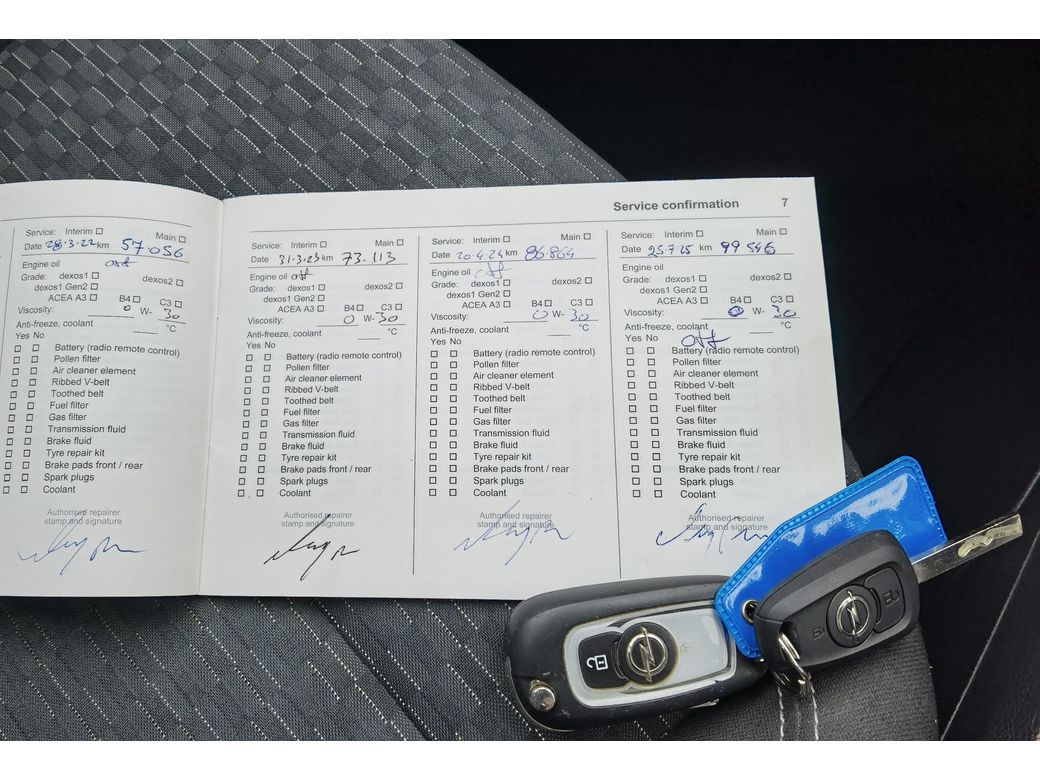 Service confirmation 7
Service: Interim Main
Date 28·3·22 km 57·056
Engine oil
Grade: dexos1 dexos2
dexos1 Gen2
ACEA A3 B4 C3
Viscosity: 0 W- 30
Anti-freeze, coolant °C
Yes No
Battery (radio remote control)
Pollen filter
Air cleaner element
Ribbed V-belt
Toothed belt
Fuel filter
Gas filter
Transmission fluid
Brake fluid
Tyre repair kit
Brake pads front / rear
Spark plugs
Coolant
Authorised repairer
stamp and signature
Service: Interim Main
Date 31·3·23 km 73·113
Engine oil
Grade: dexos1 dexos2
dexos1 Gen2
ACEA A3 B4 C3
Viscosity: 0 W- 30
Anti-freeze, coolant °C
Yes No
Battery (radio remote control)
Pollen filter
Air cleaner element
Ribbed V-belt
Toothed belt
Fuel filter
Gas filter
Transmission fluid
Brake fluid
Tyre repair kit
Brake pads front / rear
Spark plugs
Coolant
Authorised repairer
stamp and signature
Service: Interim Main
Date 20·4·24 km 86·864
Engine oil
Grade: dexos1 dexos2
dexos1 Gen2
ACEA A3 B4 C3
Viscosity: 0 W- 30
Anti-freeze, coolant °C
Yes No
Battery (radio remote control)
Pollen filter
Air cleaner element
Ribbed V-belt
Toothed belt
Fuel filter
Gas filter
Transmission fluid
Brake fluid
Tyre repair kit
Brake pads front / rear
Spark plugs
Coolant
Authorised repairer
stamp and signature
Service: Interim Main
Date 25·7·25 km 99 546
Engine oil
Grade: dexos1 dexos2
dexos1 Gen2
ACEA A3 B4 C3
Viscosity: 0 W- 30
Anti-freeze, coolant °C
Yes No
Battery (radio remote control)
Pollen filter
Air cleaner element
Ribbed V-belt
Toothed belt
Fuel filter
Gas filter
Transmission fluid
Brake fluid
Tyre repair kit
Brake pads front / rear
Spark plugs
Coolant
Authorised repairer
stamp and signature